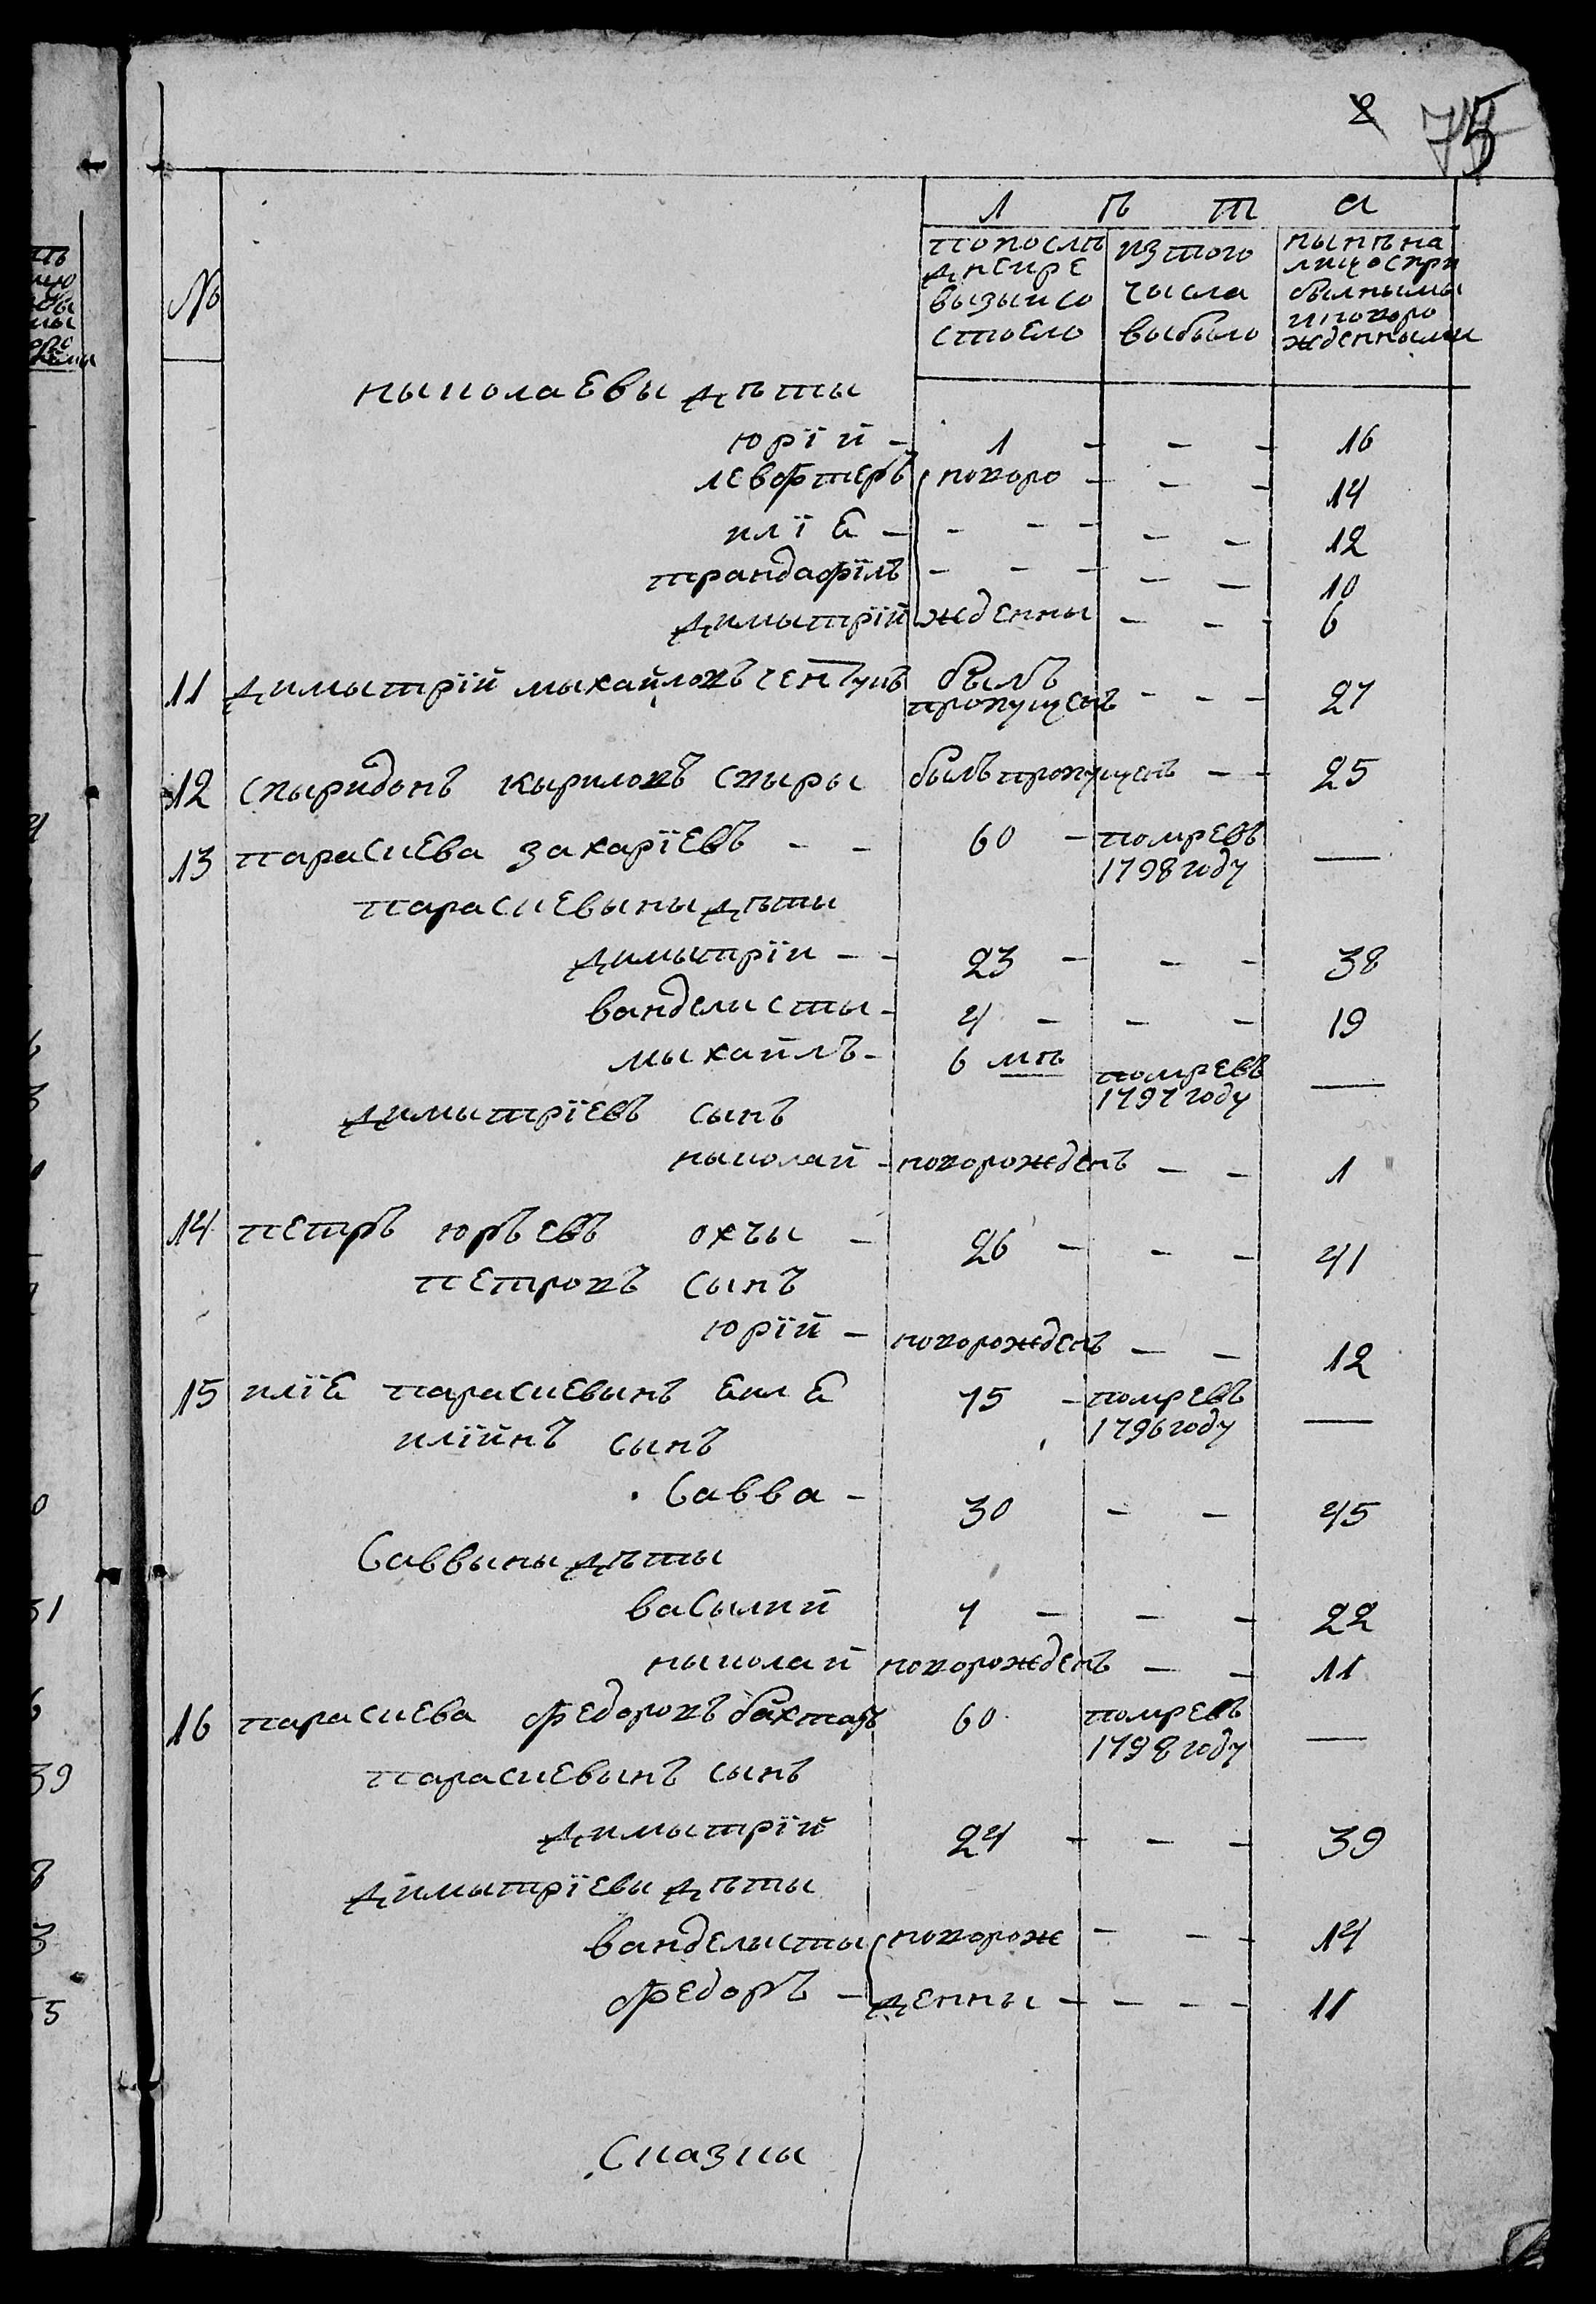 75
№
Л ѣ т а
попослѣ
дней ре
визыи со
стоело
изтого
числа
выбыло
нынѣ на
лицо с при
былнымы
и новоро
жденными
ныколаевы дѣты
юрїй - 1 - - - 16
левфтерь новоро - - - 14
илїа - - - - - - 12
трандафїль - - - - - 10
димытрїй жденны - - - 6
11 димытрїй мыхайловъ чентукъ былъ пропущенъ - - - 27
12 спыридонъ кыриловъ спыры былъ пропущенъ - - 25
13 параскева захарїевъ - - 60 - помревъ 1798 году —
параскевыны дѣты
димытрїи - - 23 - - - 38
ванделисты - 4 - - - 19
мыхайлъ - 6 мѣ помревъ 1797 году —
димытрїевъ сынъ
ныколай - новорожденъ - - 1
14 петръ юрьевъ охчы - 26 - - - 41
петровъ сынъ
юрїй - новорожденъ - - 12
15 илїа параскевынъ аила 75 - помревъ 1796 году —
илїинъ сынъ
Савва - 30 - - 45
Саввыны дѣты
васылий 7 - - - 22
ныколай новорожденъ - - 11
16 параскева федоровъ бахтаръ 60 помревъ 1798 году —
параскевынъ сынъ
димытрїй 24 - - - 39
димытрїевы дѣты
ванделисты новорож - - - 14
федоръ - денны - - - - 11
Сказкы